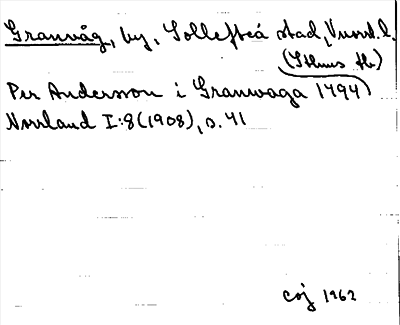 Granvåg, by, Sollefteå stad, Vnrrl. l.
Per Andersson i Granwaga 1494
Norrland I:8 (1908), s. 41
coj 1962